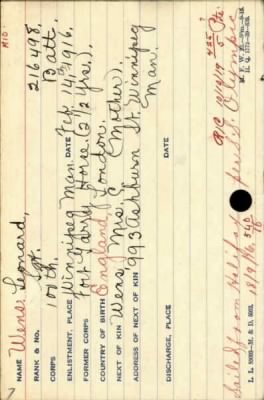 M10
NAME Wems, Leonard,
RANK & No. Sgt. 216498
CORPS 100th Batt.
ENLISTMENT, PLACE Winnipeg Man. DATE Feb. 14th 1916.
FORMER CORPS Fort Garry Horse. (2 1/2 yrs.)
COUNTRY OF BIRTH England, London.
NEXT OF KIN Wems, Mrs. C (Mother)
ADDRESS OF NEXT OF KIN 993 Ashburn St. Winnipeg Man.
DISCHARGE, PLACE DATE
Sailed from Halifax per S.S. Olympic
18/9/16